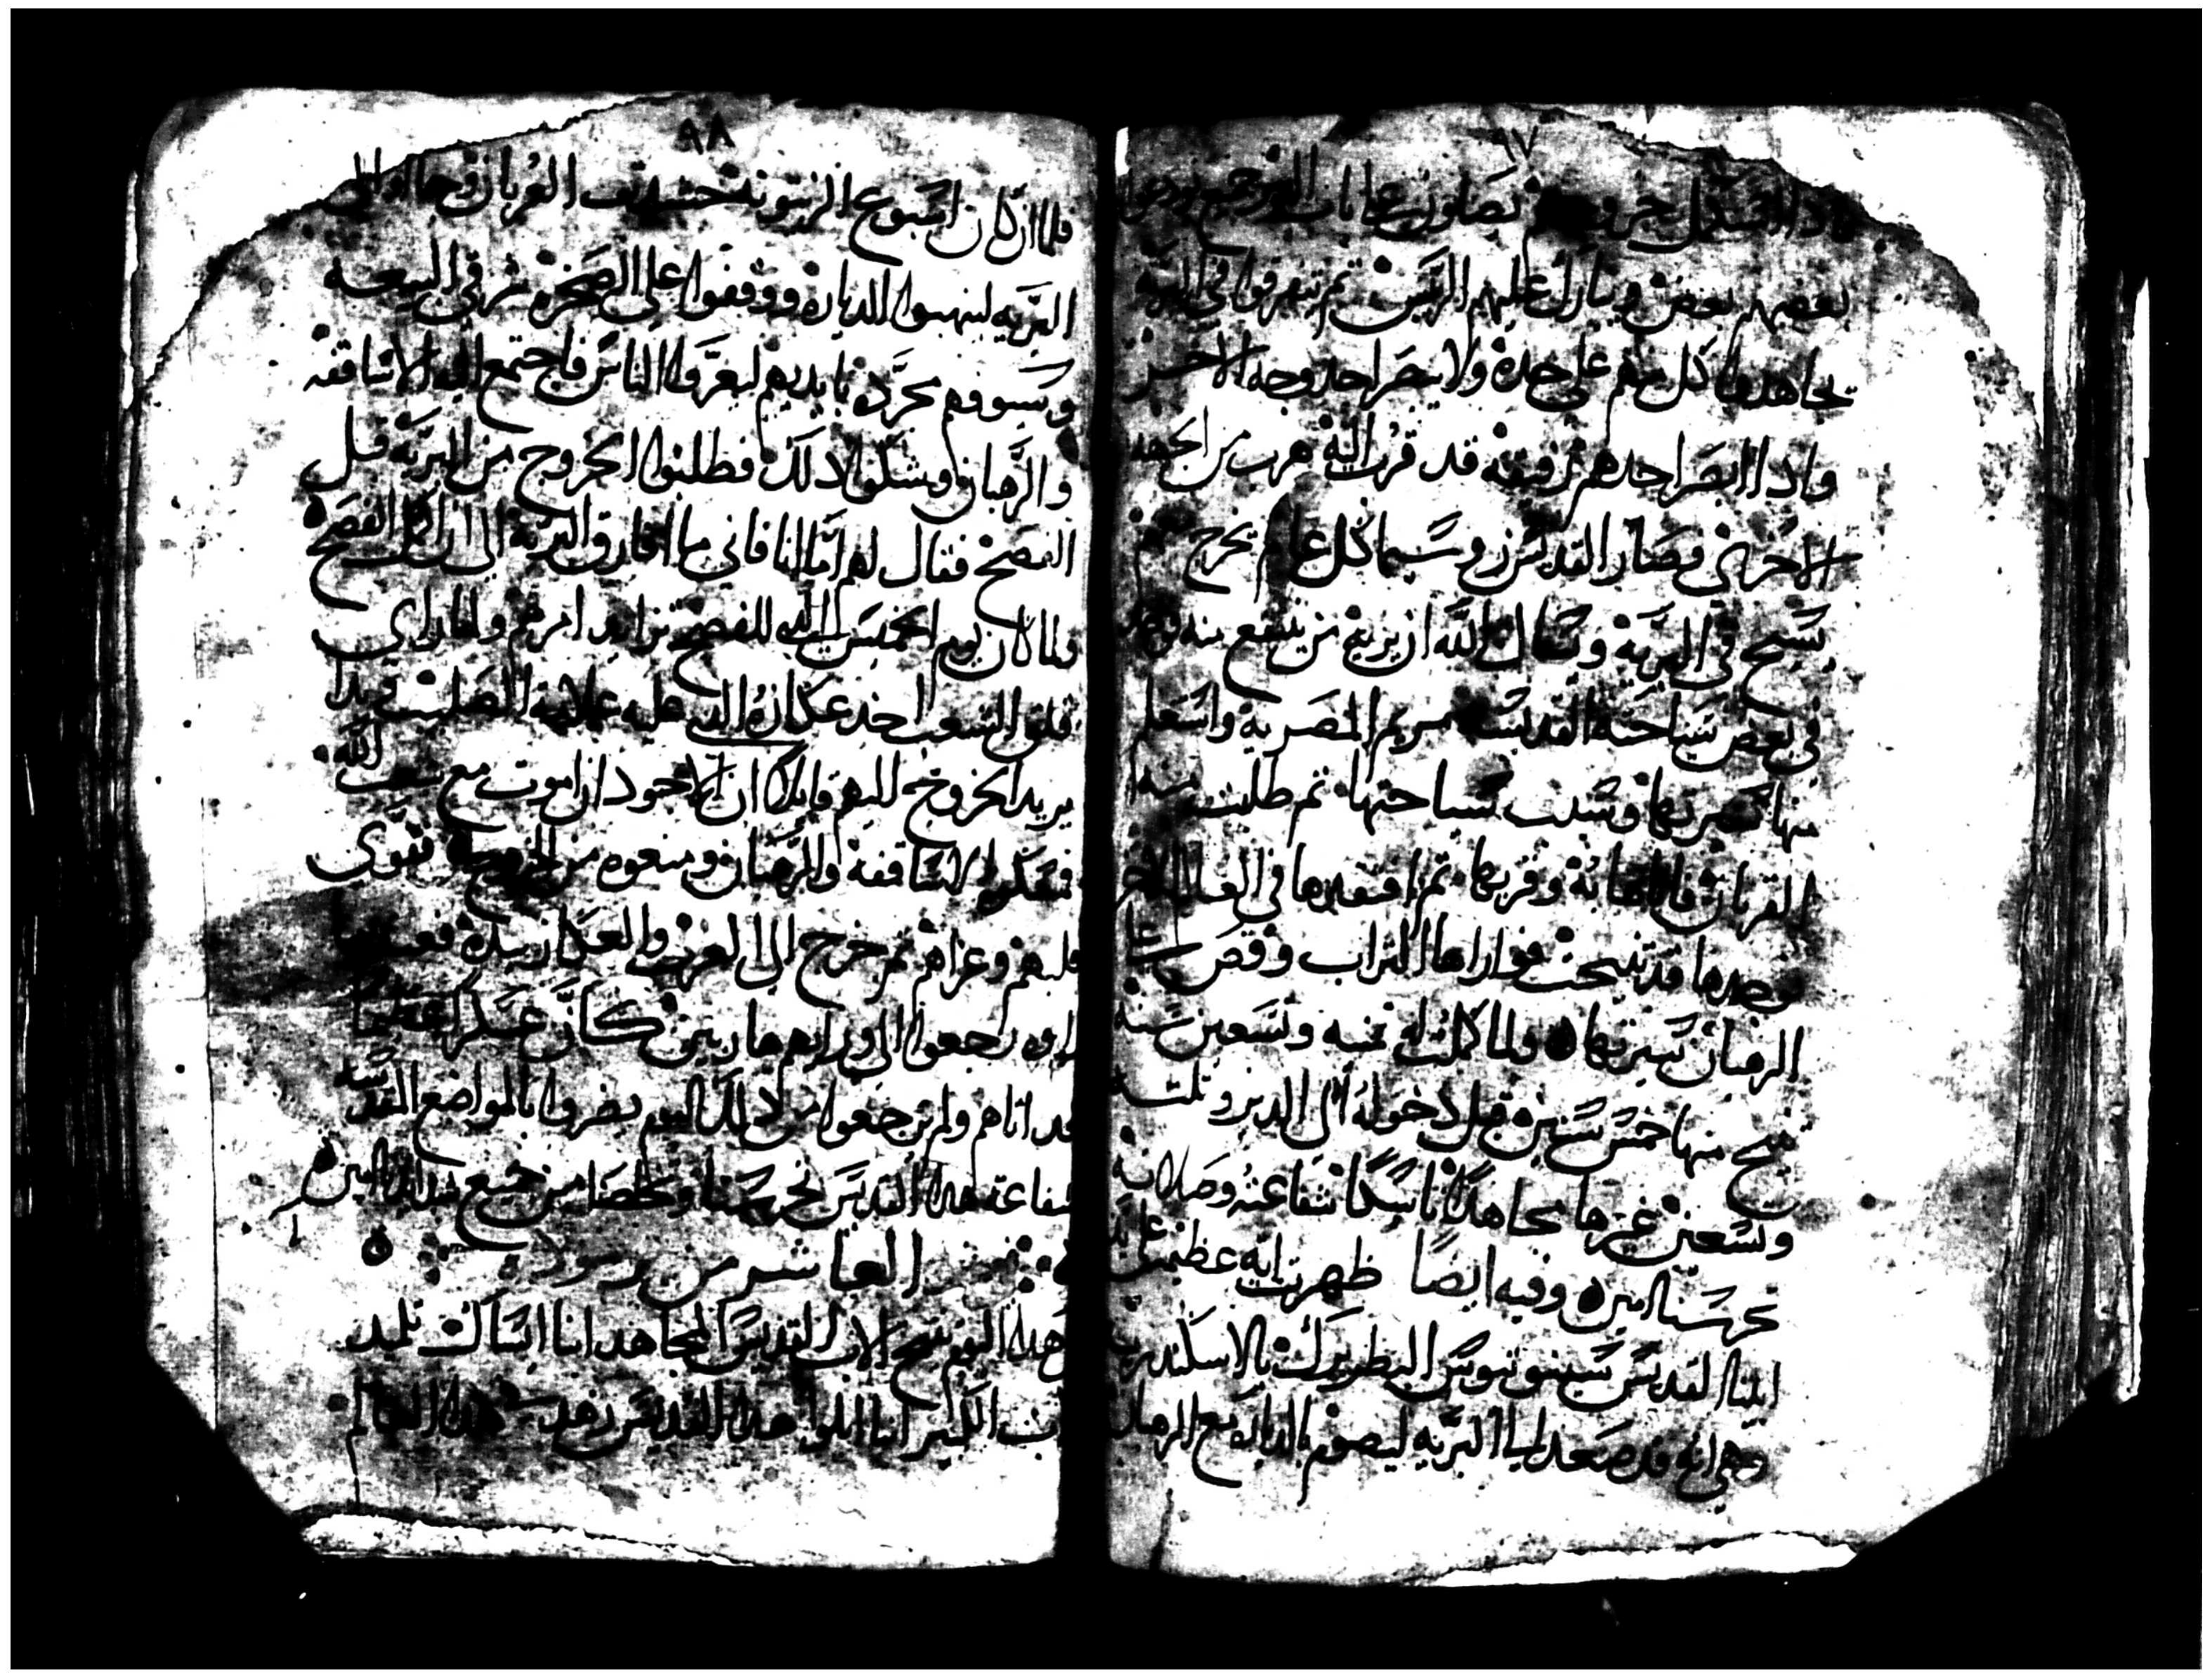 ٩٧
فاذا استكمل خروجهم يصلون على باب الدير جميع يودعوا
بعضهم بعض ويبارك عليهم الريس ثم يتفرقوا في البرية
يجاهدوا كل منهم على حدة ولا يبصر احد وجه الاخر
واذا ابصر احدهم رفيقه قد قرب اليه هرب من الجهه
الاخرى فصار القديس زوسيما كل عام يخرج
يسيح في البرية وسال الله ان يريه من ينتفع منه فوجد
في بعض سياحته القديسة مريم المصرية واستعلم
منها سيرتها وسبب سياحتها ثم طلبت منه
القربان فاتاها به وقربها ثم افتقدها في العام الاخر
فوجدها قد تنيحت فواراها التراب وقص على
الرهبان سيرتها ولما كملت له تسعه وتسعين سنة
تنيح منها خمس سنين قبل دخوله الى الدير وثلثه
وتسعين غيرها مجاهدا ناسكا شفاعته وصلاته
تحرسنا امين وفيه ايضا ظهرت ايه عظيمه على يد
ابينا القديس سينوتيوس البطريرك بالاسكندرية
وهي انه قد صعد الى البريه ليصوم بالدياره مع الرهبان
٩٨
فلما ان كان اسبوع الزيتونة حشدت العربان وجااوا الى
البريه لينهبوا الدياره ووقفوا على الصخره شرقي البيعه
وسيوفهم مجرده بايديهم ليعروا الناس فاجتمع اليه الاساقفه
والرهبان وشكوا ذلك فطلبوا الخروج من البريه قبل
الفصح فقال لهم اما انا فاني ما افارق البرية الى ان اكمل الفصح
ولما كان يوم الخميس الذي للفصح تزايد امرهم ولما راى
قلق الشعب اخذ عكازه الذي عليه علامة الصليب وبدا
يريد الخروج اليهم قايلا ان الاجود ان اموت مع شعب الله
فمسكوه الاساقفة والرهبان ومنعوه من الخروج فقوى
قلبهم وعزاهم ثم خرج الى العربان والعكاز بيده فعندما
راوه رجعوا الى ورايهم هاربين كان عسكرا عظيما
قد اتاهم ولم يرجعوا من ذلك اليوم يضروا بالمواضع المقدسه
شفاعة هذا القديس تحرسنا وتخلصنا من جميع شدايدنا امين
العاشر من برموده
في هذا اليوم تنيح الاب القديس المجاهد انبا ايساك تلميذ
الاب الكبير انبا ابلوا هذا القديس زهد هذا العالم